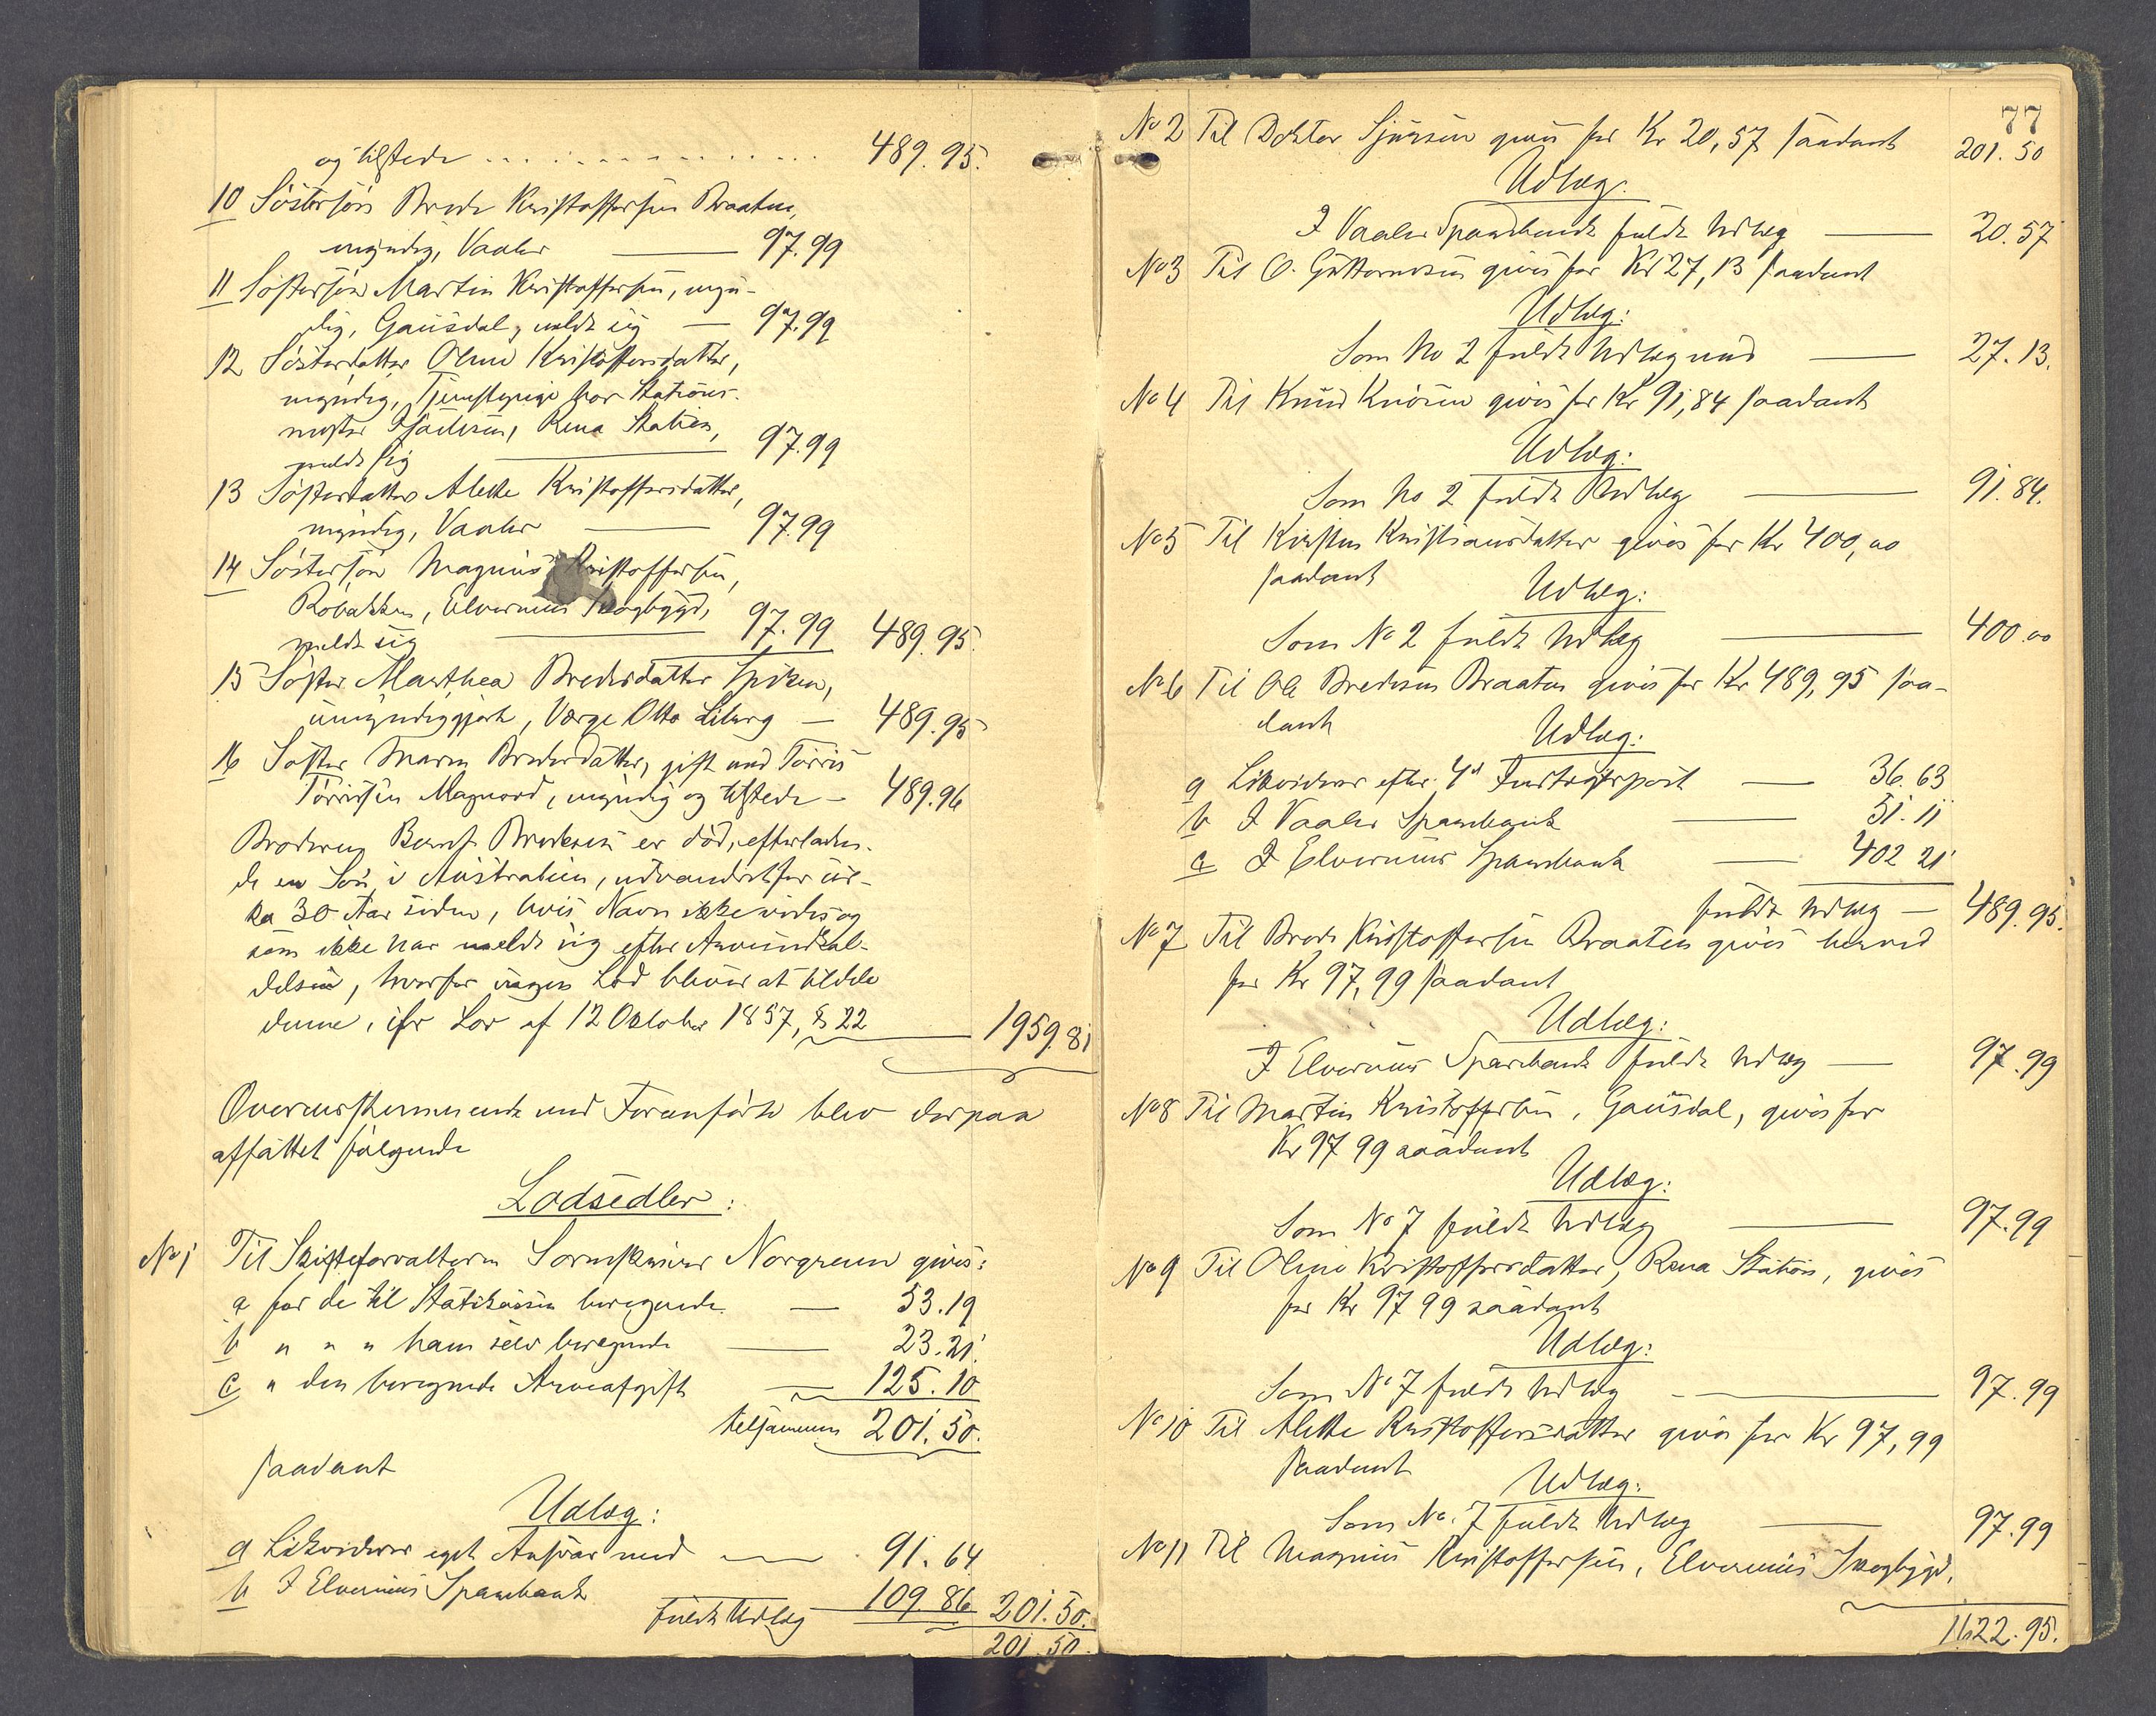 og tilstede . . . . . . . . . . . . . . 489.95.
10 Søstersøn Brede Kristoffersen Braaten,
myndig, Vaaler — 97.99
11 Søstersøn Martin Kristoffersen, myn-
dig, Gausdal, meldt sig — 97.99
12 Søsterdatter Oline Kristoffersdatter,
myndig, Tjenestepige hos Stations-
mester Rena Station,
meldt sig — 97.99
13 Søsterdatter Alette Kristoffersdatter,
myndig, Vaaler — 97.99
14 Søstersøn Magnus Kristoffersen,
Robakken, Elverums Skogbygd,
meldt sig — 97.99 489.95.
15 Søster Marthea Bredesdatter
umyndiggjort, Værge Otto Liberg — 489.95
16 Søster Maren Bredesdatter, gift med Tørris
Tørrissen Magnord, myndig og tilstede — 489.96
Broderen Bernt Bredesen er død, efterladen-
de en Søn i Australien, udvandret for cir-
ka 30 Aar siden, hvis Navn ikke vides og
som ikke har meldt sig efter Arveindkal-
delsen, hvorfor ingen Lod bliver at tildele
denne, ifr Lov af 12 Oktober 1857, § 22 — 1959.81
Overensstemmende med Foranførte blev derpaa
affattet følgende
Lodsedler:
No 1 Til Skifteforvalteren Sorenskriver Norgreen gives:
a for de til Statskassen beregnede — 53.19
b " " " ham selv beregnede — 23.21.
c " den beregnede Arveafgift — 125.10
tilsammen 201.50.
saadant
Udlæg:
a Likviderer eget Ansvar med — 91.64
b I Elverums Sparebank 109.86
fuldt Udlæg — 201.50.
201.50.
77
No 2 Til Doktor Sjursen gives for Kr 20,57 saadant 201.50
Udlæg:
I Vaaler Sparebank fuldt Udlæg — 20.57
No 3 Til O. Guttormsen gives for Kr 27,13 saadant
Udlæg:
Som No 2 fuldt Udlæg med — 27.13.
No 4 Til Knud gives for Kr 91,84 saadant
Udlæg:
Som No 2 fuldt Udlæg — 91.84.
No 5 Til Kirsten Kristiansdatter gives for Kr 400,00
saadant
Udlæg:
Som No 2 fuldt Udlæg — 400.00
No 6 Til Ole Bredesen Braaten gives for Kr 489,95 saa-
dant
Udlæg:
a Likviderer efter 4d Indtægtspost — 36.63
b I Vaaler Sparebank — 51.11
c I Elverums Sparebank — 402 21
fuldt Udlæg — 489.95.
No 7 Til Brede Kristoffersen Braaten gives herved
for Kr 97,99 saadant
Udlæg:
I Elverums Sparebank fuldt Udlæg — 97.99
No 8 Til Martin Kristoffersen, Gausdal, gives for
Kr 97 99 saadant
Udlæg:
Som No 7 fuldt Udlæg — 97.99
No 9 Til Oline Kristoffersdatter, Rena Station, gives
for Kr 97 99 saadant
Udlæg:
Som No 7 fuldt Udlæg — 97.99
No 10 Til Alette Kristoffersdatter gives for Kr 97,99
saadant
Udlæg:
Som No. 7 fuldt Udlæg — 97.99
No 11 Til Magnus Kristoffersen, Elverums Skogbygd,
1622.95.